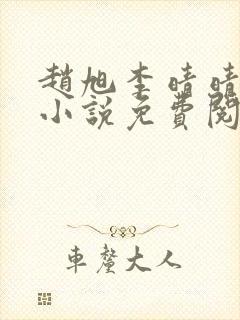 趙旭李晴晴
小說免費閱
車釐大人